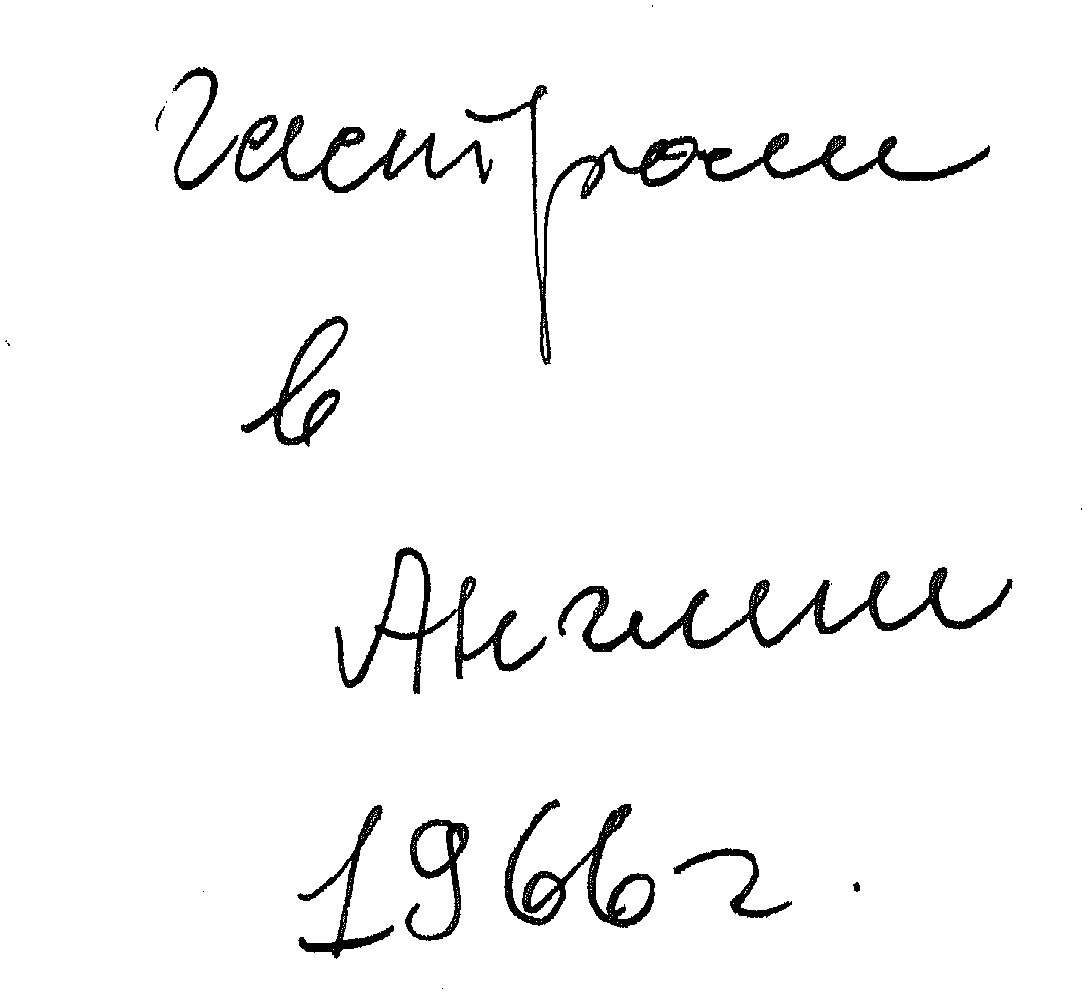 Гастроли
в
Англии
1966 г.